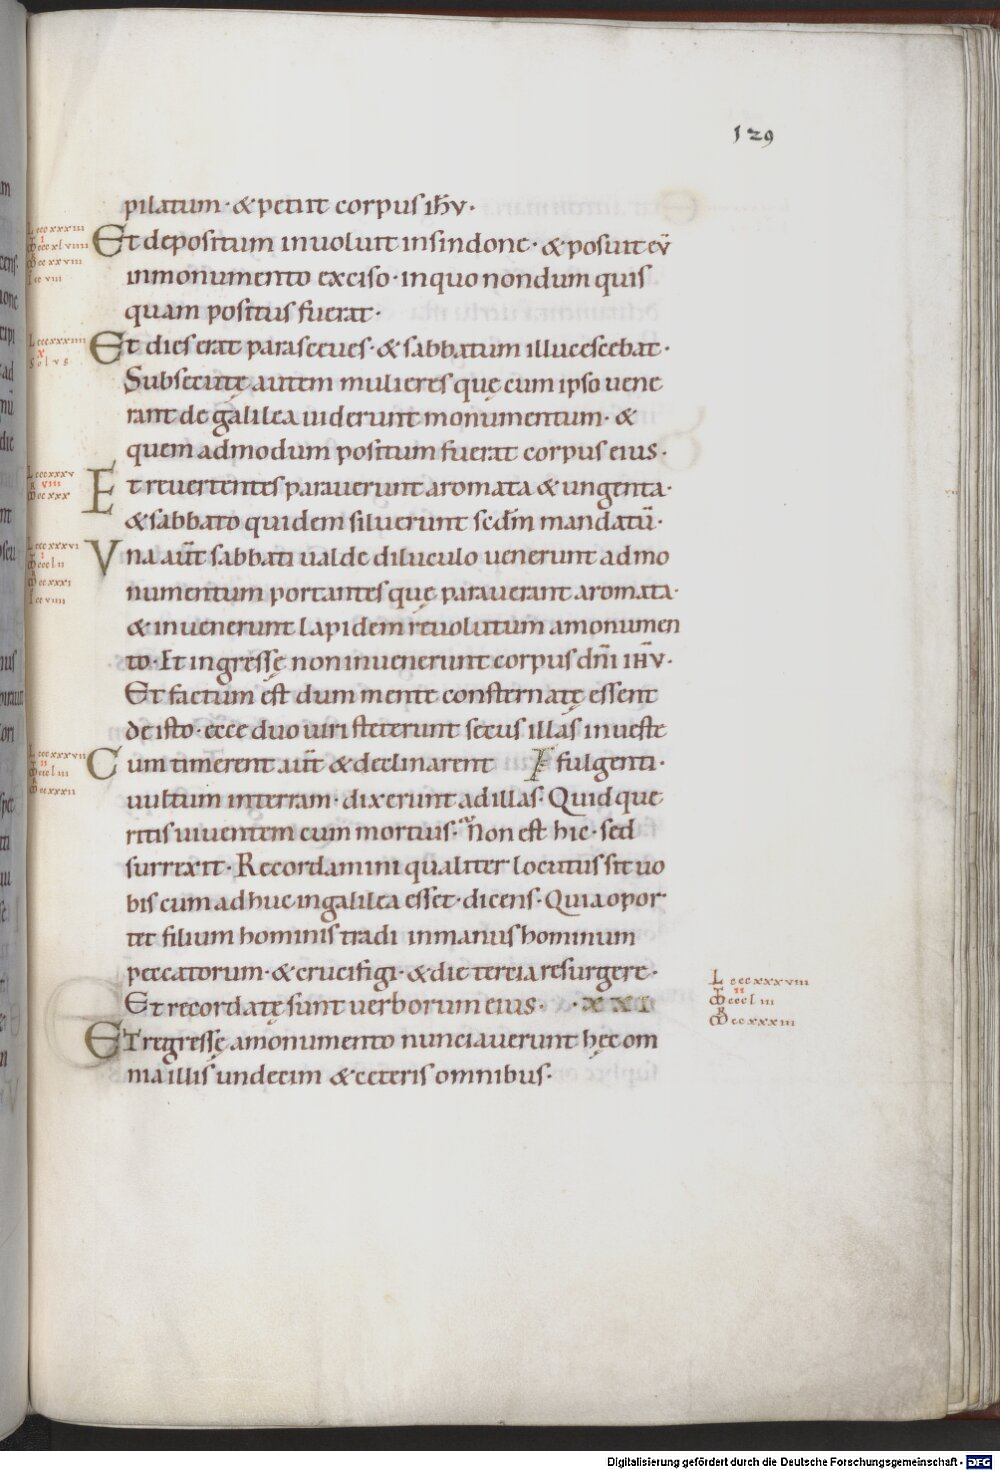 129
pilatum · & petiit corpus ihv̄ ·
Et depositum inuoluit insindone · & posuit ev̄
inmonumento exciso · inquo nondum quis
quam positus fuerat ·
Et dies erat parasceues · & sabbatum illucescebat ·
Subsecutę autem mulieres quę cum ipso uene
rant de galilea uiderunt monumentum · &
quem admodum positum fuerat corpus eius ·
Et reuertentes parauerunt aromata & ungenta ·
& sabbato quidem siluerunt secdm̄ mandatū ·
Vna aūt sabbati ualde diluculo uenerunt admo
numentum portantes quę parauerant aromata ·
& inuenerunt lapidem reuolutum amonumen
to · Et ingressę non inuenerunt corpus dn̄i ihv̄ ·
Et factum est dum mente consternatę essent
de isto · ecce duo uiri steterunt secus illas inueste
Cum timerent aūt & declinarent fulgenti ·
uultum interram · dixerunt adillas · Quid que
ritis uiuentem cum mortuis · Non est hic · sed
surrexit · Recordamini qualiter locutus sit uo
bis cum adhuc ingalilea esset · dicens · Quia opor
tet filium hominis tradi inmanus hominum
peccatorum · & crucifigi · & die tercia resurgere ·
Et recordatę sunt uerborum eius · · xxi
ETregressę amonumento nunciauerunt hęc om
nia illis undecim & ceteris omnibus ·
L cccxxxiii
cccxlviiii
ccxxviii
ccviii
L cccxxxiiii
x
solvs
L cccxxxv
viii
ccxxx
L cccxxxvi
i
ccclii
ccxxxi
ccviiii
L cccxxxvii
ii
cccliii
ccxxxii
L cccxxxviii
ii
cccliii
ccxxxiii
Digitalisierung gefördert durch die Deutsche Forschungsgemeinschaft - DFG